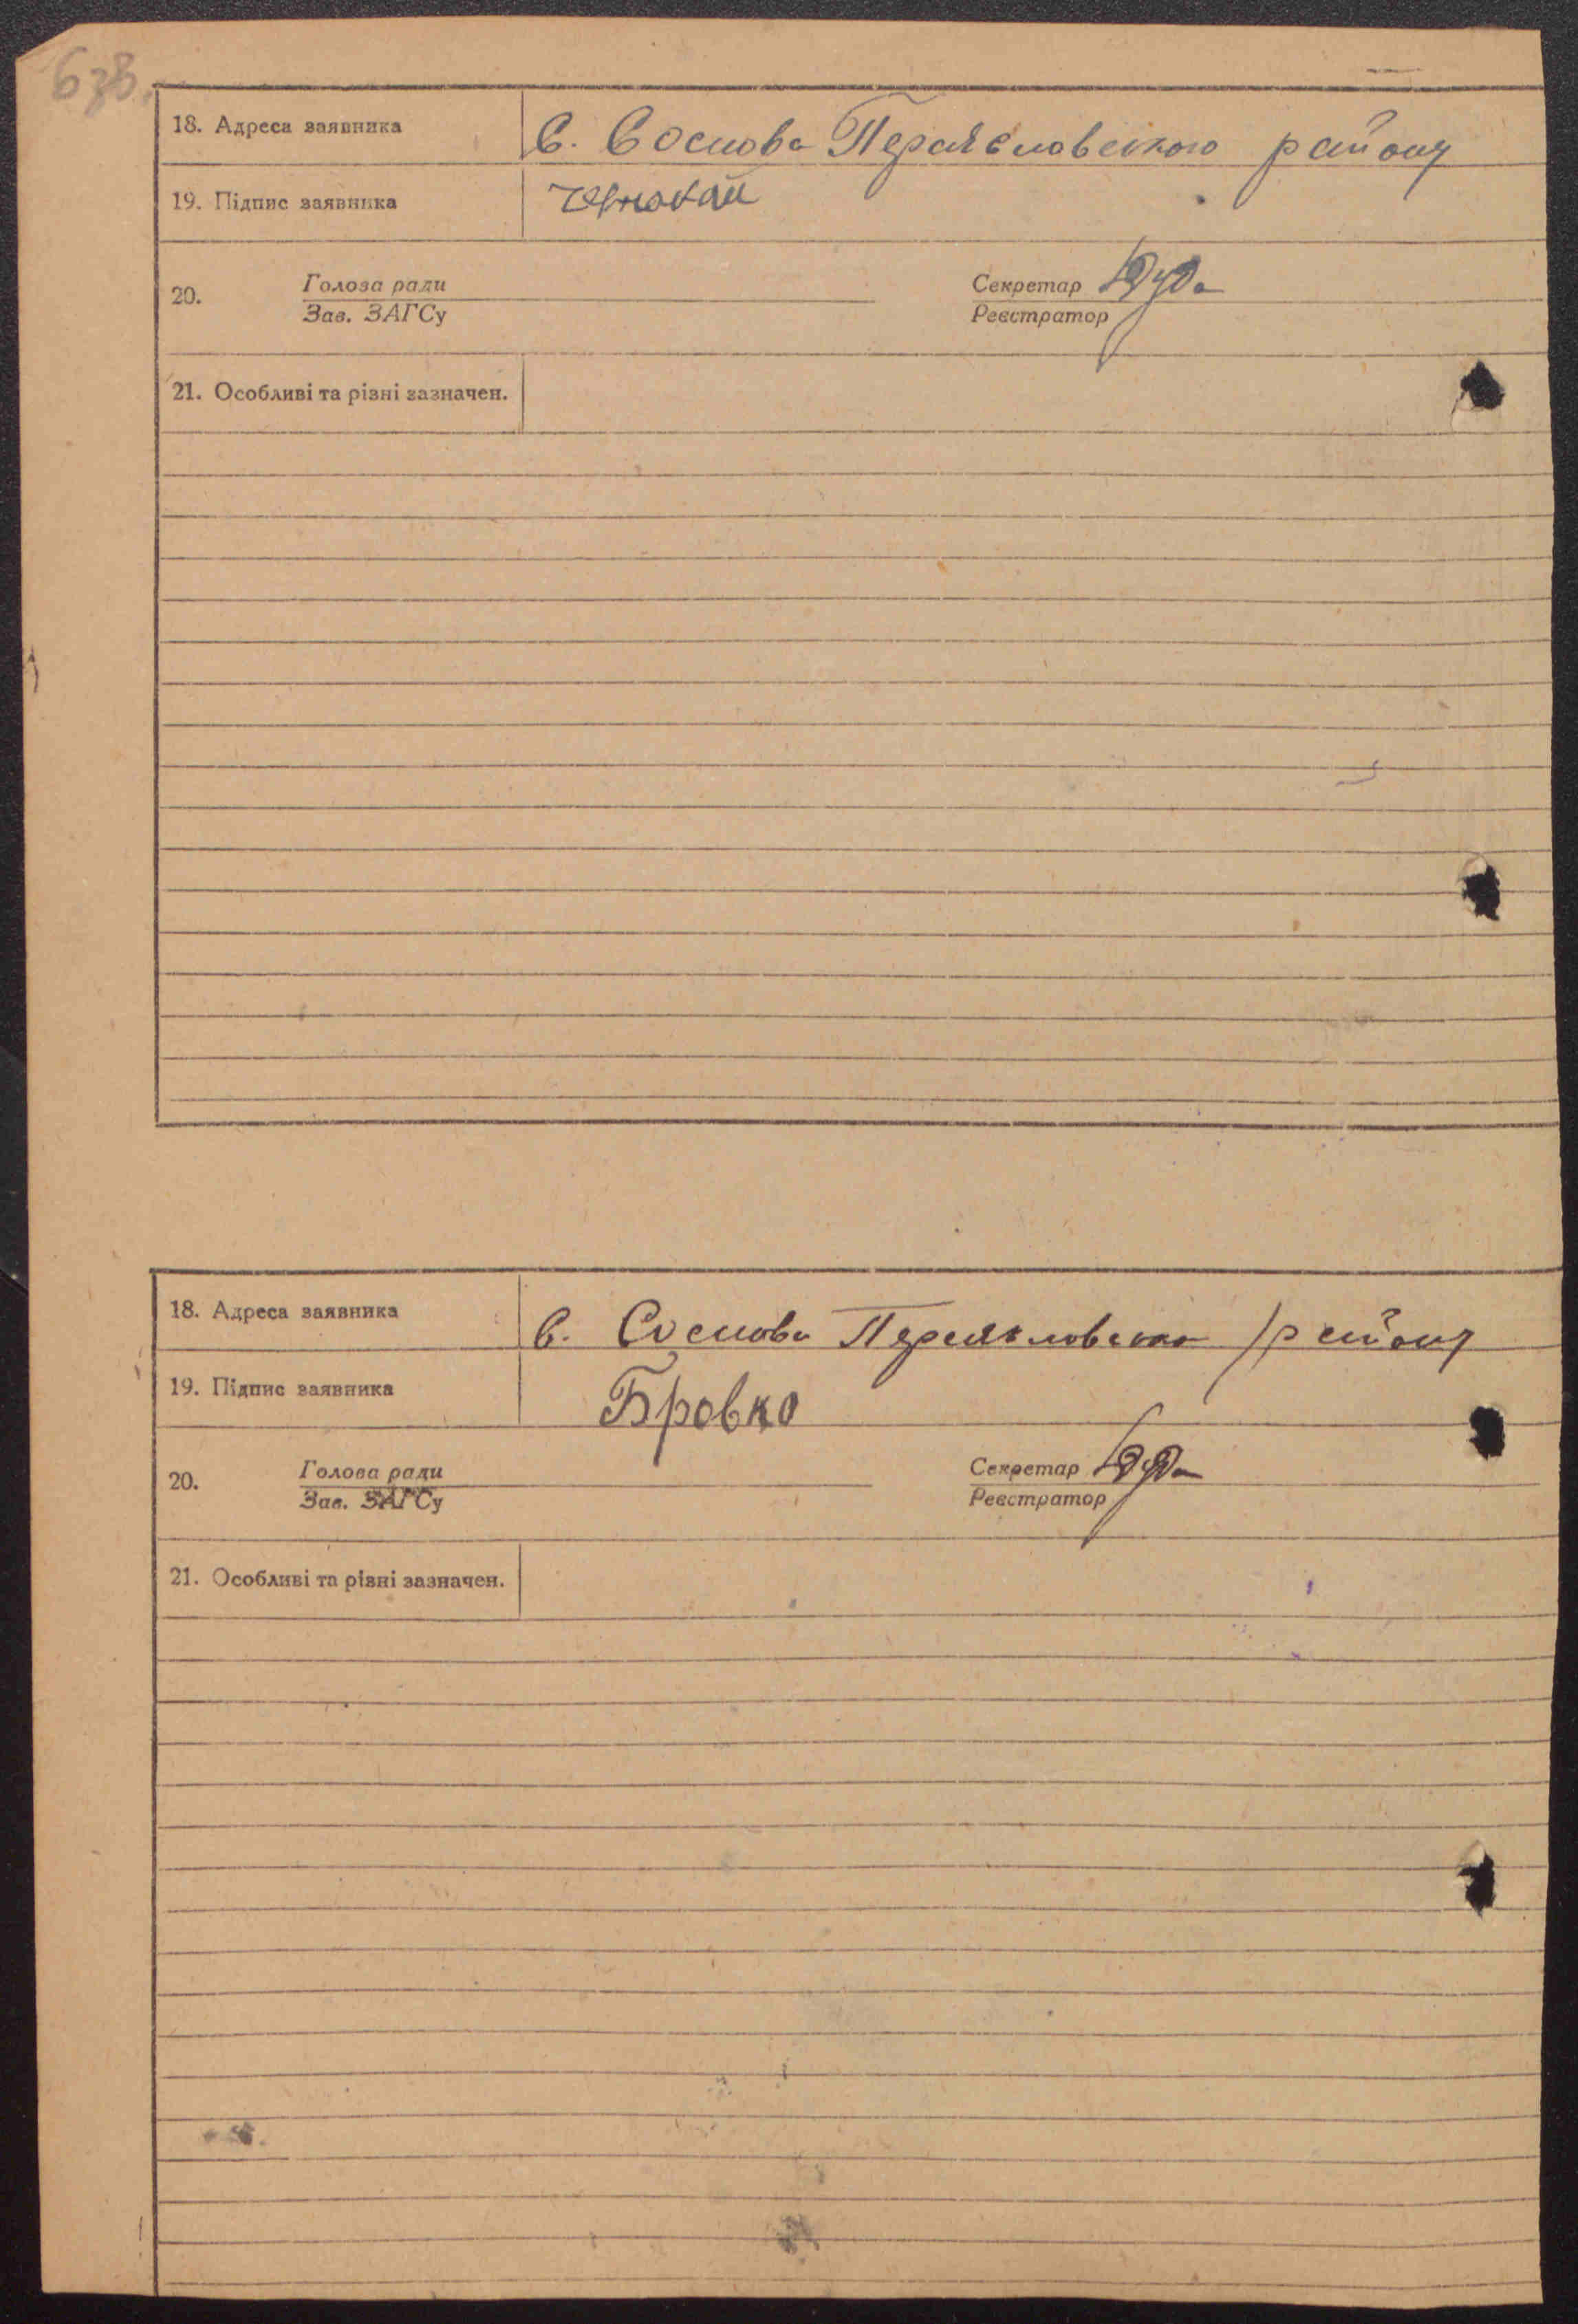 638.
18. Адреса заявника С. Соснова Переяславського району
19. Підпис заявника
20. Голова ради Секретар Дуда
Зав. ЗАГСу Реєстратор
21. Особливі та різні зазначен.
18. Адреса заявника С. Соснова Переяславсько району
19. Підпис заявника Бровко
20. Голова ради Секретар Дуда
Зав. ЗАГСу Реєстратор
21. Особливі та різні зазначен.